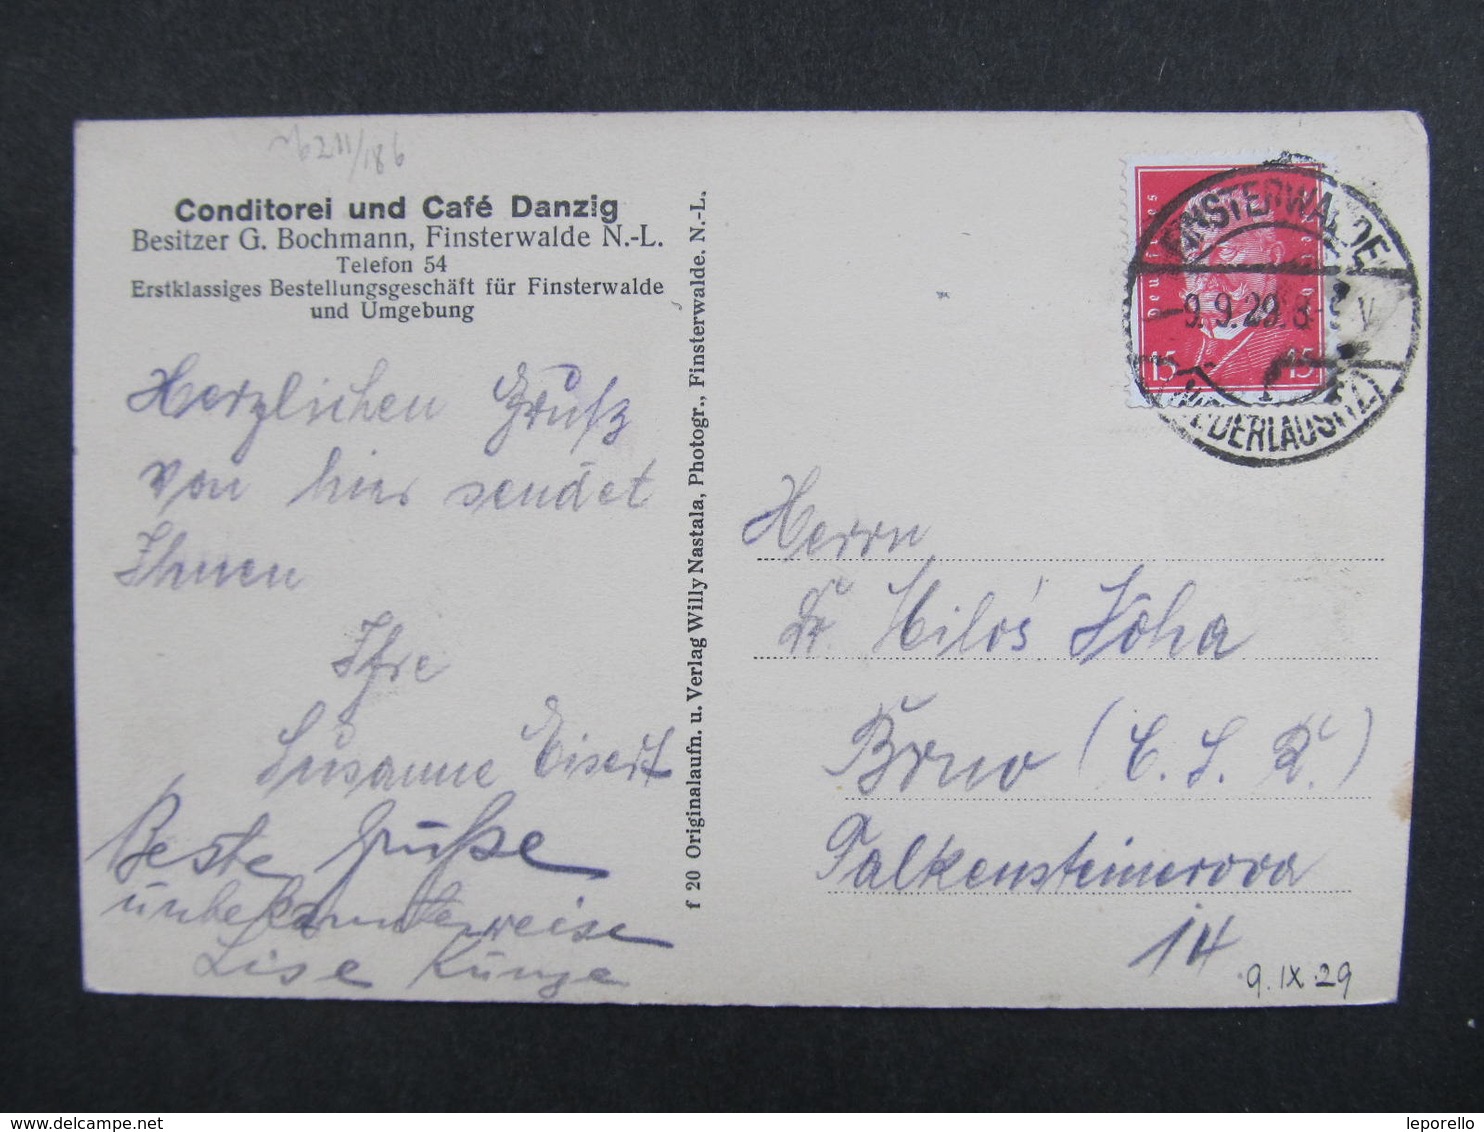 Conditorei und Café Danzig
Besitzer G. Bochmann, Finsterwalde N.-L.
Telefon 54
Erstklassiges Bestellungsgeschäft für Finsterwalde
und Umgebung
Herzlichen Gruß
von hier sendet
Ihnen
Ihre
Susanne Eisert
Beste Grüße
unbekannterweise
Lise Kunze
f 20 Originalaufn. u. Verlag Willy Nastala, Photogr., Finsterwalde, N.-L.
Deutsches Reich
15 15
FINSTERWALDE
-9.9.29. 8-9 V
(NIEDERLAUSITZ)
Herrn
Dr Miloš
Brno (C. S. R.)
Falkensteinerova
14
9.IX.29
delcampe.net
leporello